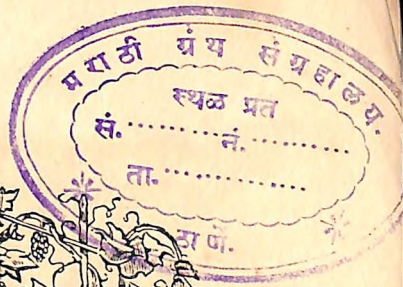 मराठी ग्रंथ संग्रहालय.
स्थळ प्रत
सं............नं............
ता...............
ठाणें.